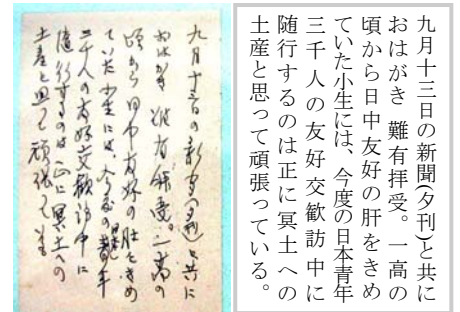 九月十三日の新聞(夕刊)と共に
おはがき 難有拝受。一高の
頃から日中友好の肝をきめ
ていた小生には、今度の日本青年
三千人の友好交歓訪中に
随行するのは正に冥土への
土産と思って頑張っている。
九月十三日の新聞(夕刊)と共に
おはがき 難有拝受。一高の
頃から日中友好の肝をきめ
ていた小生には、今度の日本青年
三千人の友好交歓訪中に
随行するのは正に冥土への
土産と思って頑張っている